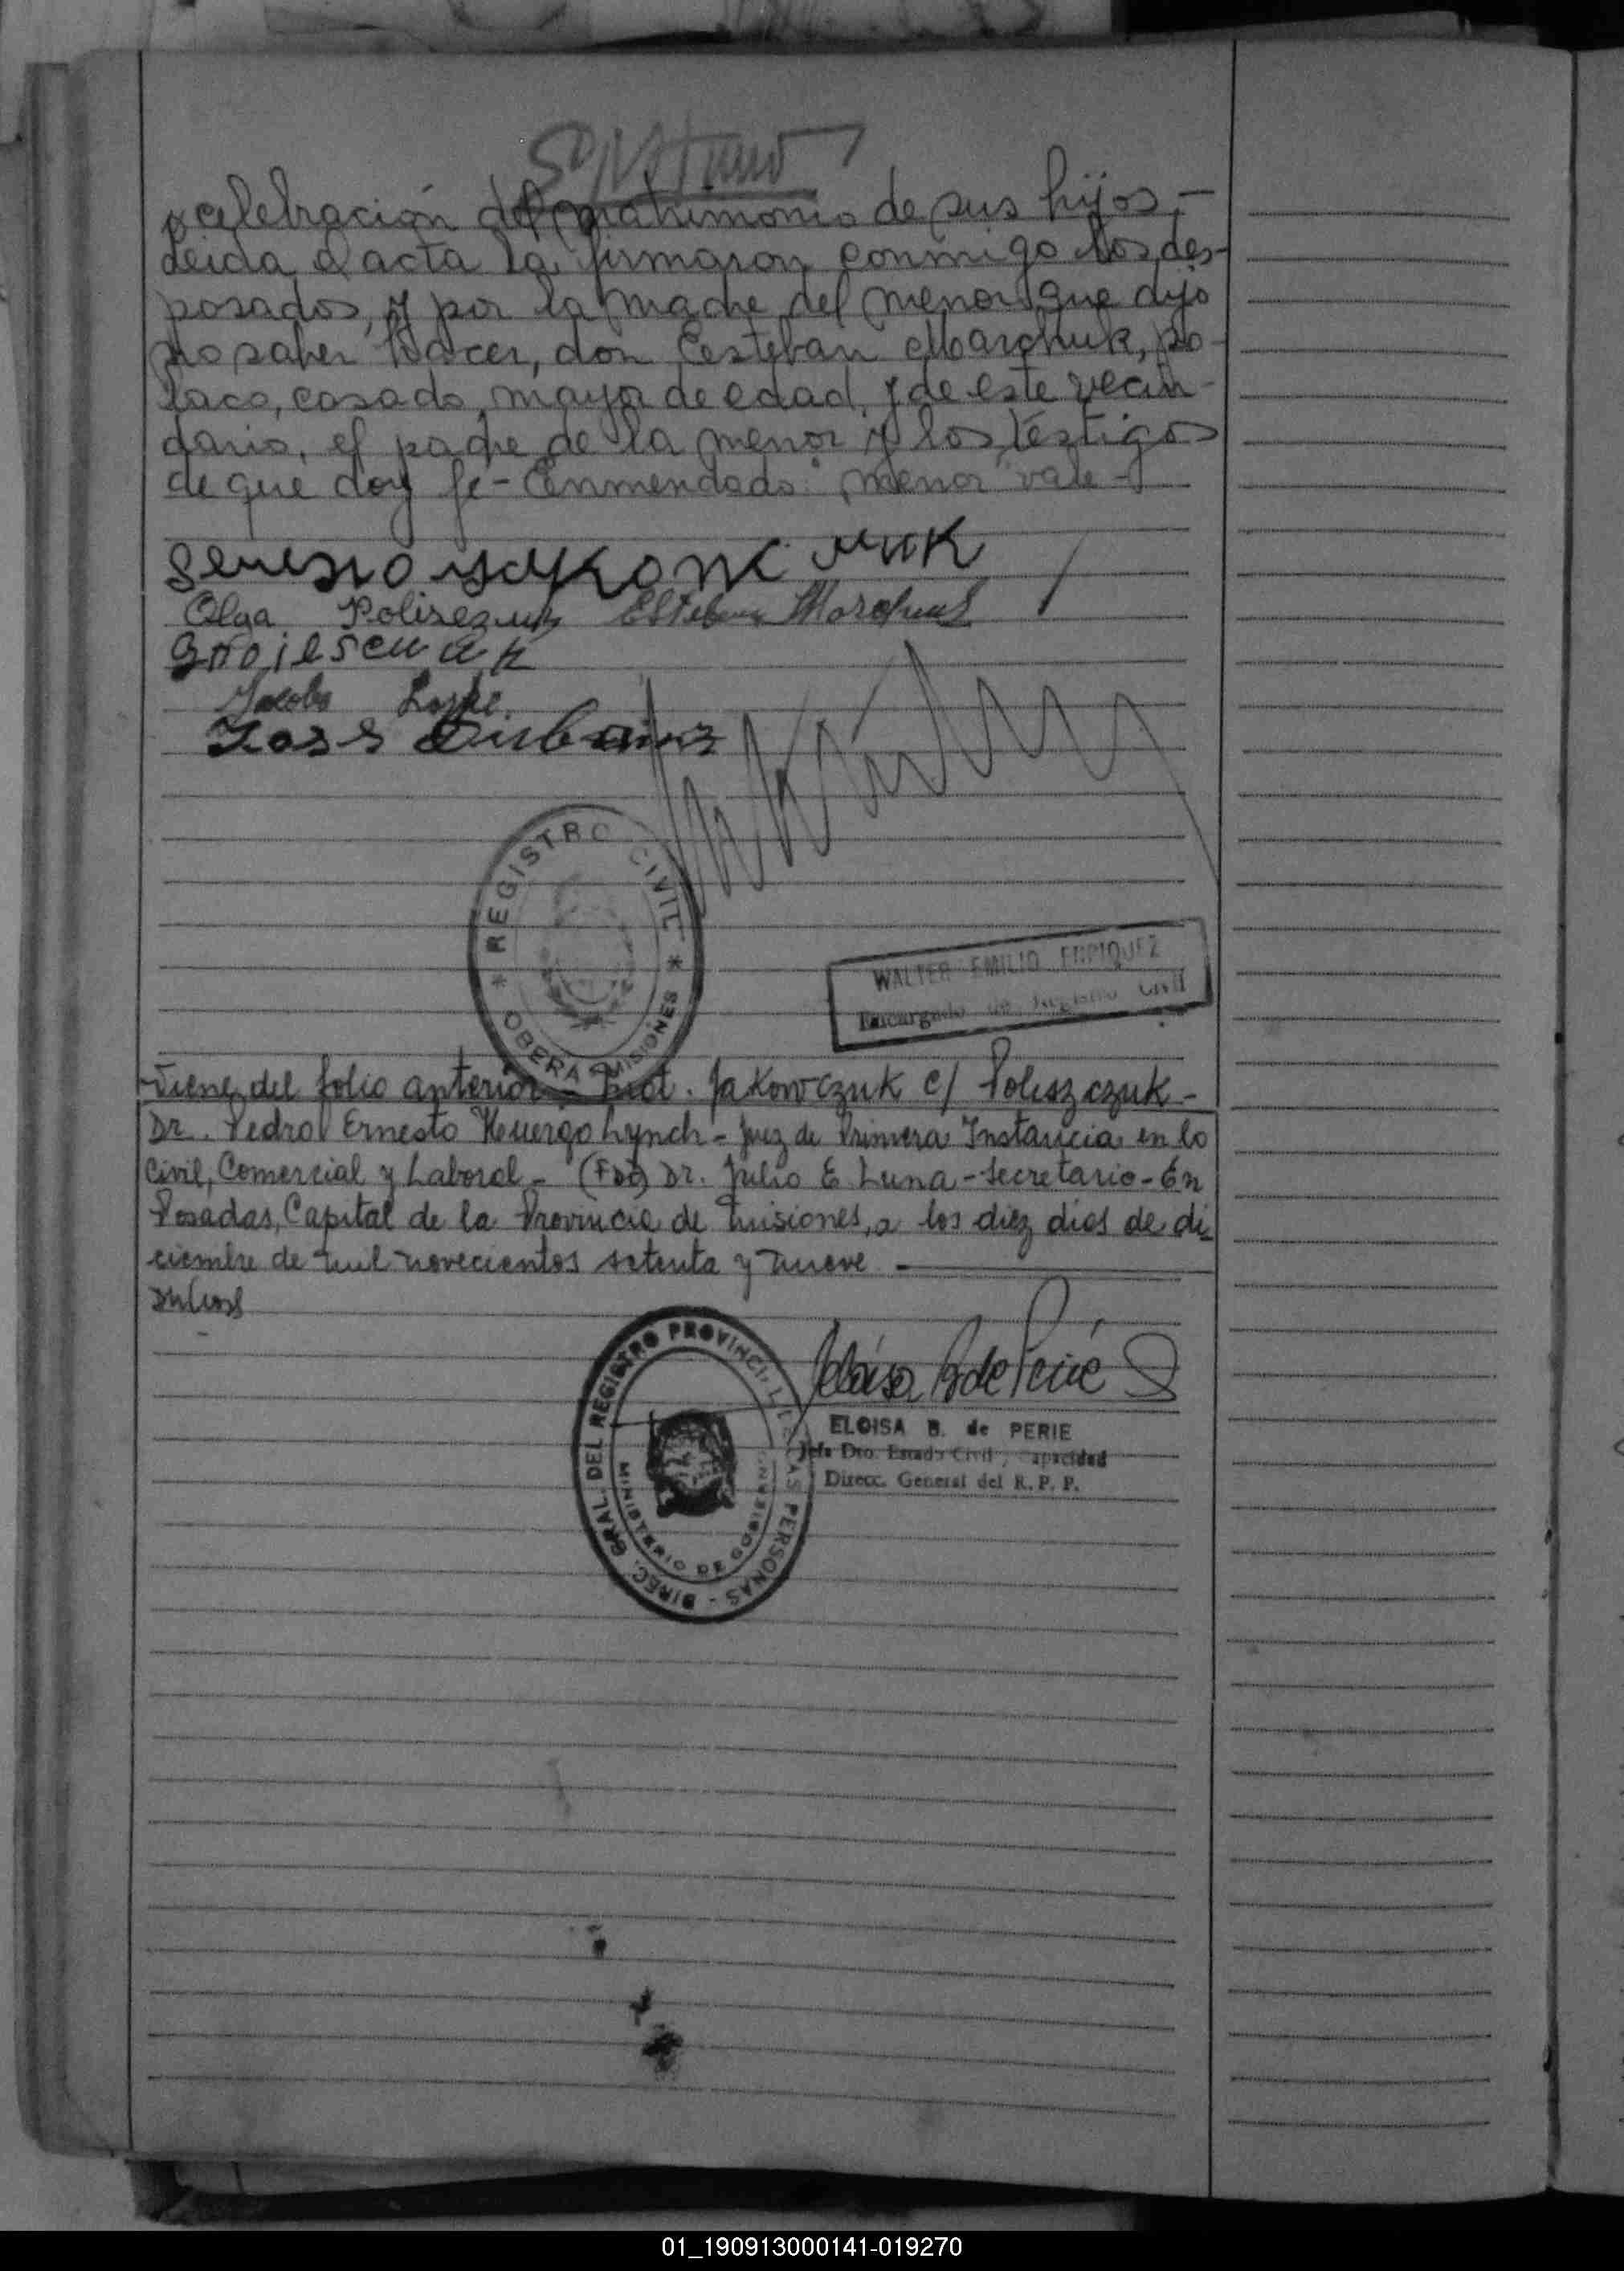 celebración del matrimonio de sus hijos,-
Leida el acta la firmaron conmigo los des-
posados, y por la madre del menor que dijo
no saber hacer, don Esteban Marchuk, po-
laco, casado, mayor de edad, y de este vecin-
dario, el padre de la menor y los testigos
de que doy fe - Enmendado: "menor" vale -
Olga Poliszczuk Esteban Marchuk
Jacobo
REGISTRO CIVIL
* OBERA MISIONES *
WALTER EMILIO ENRIQUEZ
Encargado de Registro Civil
Viene del folio anterior - Jakowczuk c/ Poliszczuk -
Dr. Pedro Ernesto Huergo Lynch - Juez de Primera Instancia en lo
Civil, Comercial y Laboral - (Fdo) Dr. Julio E. Luna - Secretario - En
Posadas, Capital de la Provincia de Misiones, a los diez días de di-
ciembre de mil novecientos setenta y nueve -
DIREC. GRAL. DEL REGISTRO PROVINCIAL DE LAS PERSONAS -
MINISTERIO DE GOBIERNO
ELOISA B. de PERIE
Jefa Dto. Estado Civil y Capacidad
Direcc. General del R. P. P.
01_190913000141-019270